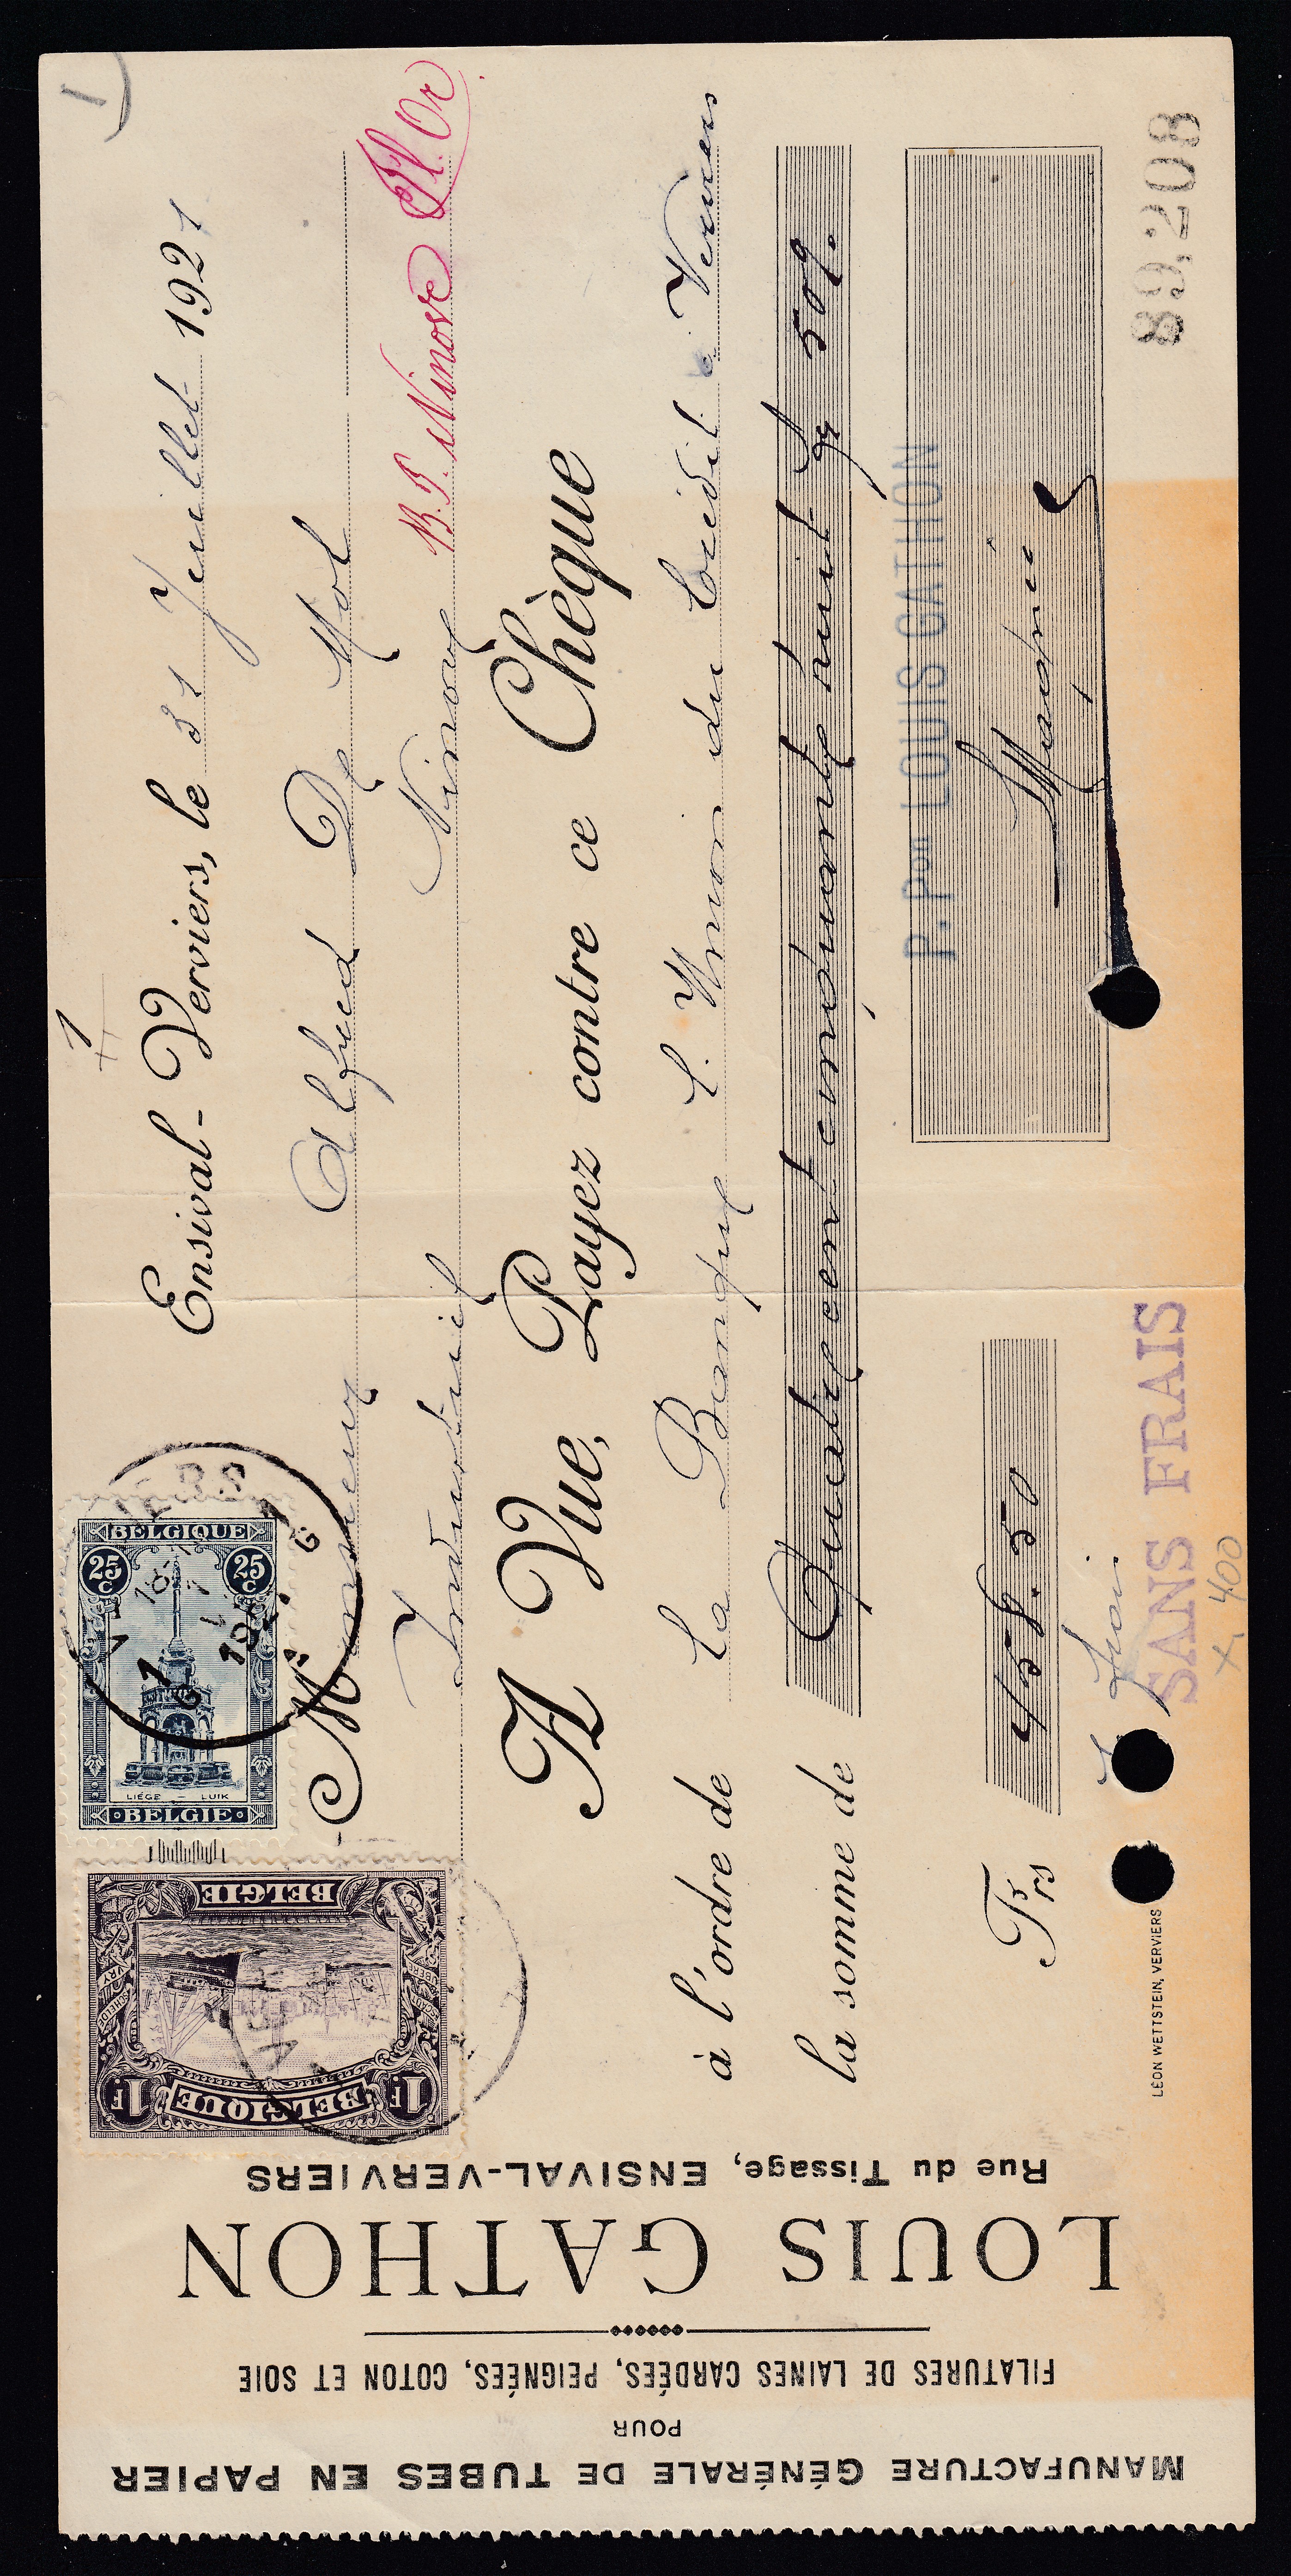 MANUFACTURE GÉNÉRALE DE TUBES EN PAPIER
POUR
FILATURES DE LAINES CARDÉES, PEIGNÉES, COTON ET SOIE
LOUIS GATHON
Rue du Tissage, ENSIVAL-VERVIERS
BELGIQUE
1F 1F
BELGIE
BELGIQUE
25 C 25 C
LIÉGE - LUIK
BELGIE
1
Ensival-Verviers, le 31 Juillet 1921
Monsieur Alfred De Mol
Industriel Ninove B.P. Ninove
A Vue, Payez contre ce Chèque
à l'ordre de La Banque L. Union du Crédit à Verviers
la somme de Quatre cent cinquante huit frs 50%.
P. Pon LOUIS GATHON
Frs 458.50
SANS FRAIS
x 400
89,208
LÉON WETTSTEIN, VERVIERS